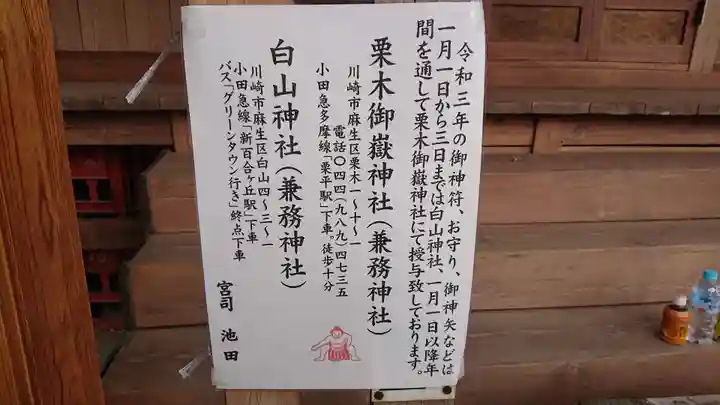 令和三年の御神符、お守り、御神矢などは
一月一日から三日までは白山神社、一月一日以降年
間を通して栗木御嶽神社にて授与致しております。
栗木御嶽神社(兼務神社)
川崎市麻生区栗木一～十～一
電話〇四四(九八九)四七三五
小田急多摩線「栗平駅」下車。徒歩十分
白山神社(兼務神社)
川崎市麻生区白山四～三～一
小田急線「新百合ヶ丘駅」下車
バス「グリーンタウン行き」終点下車
宮司 池田